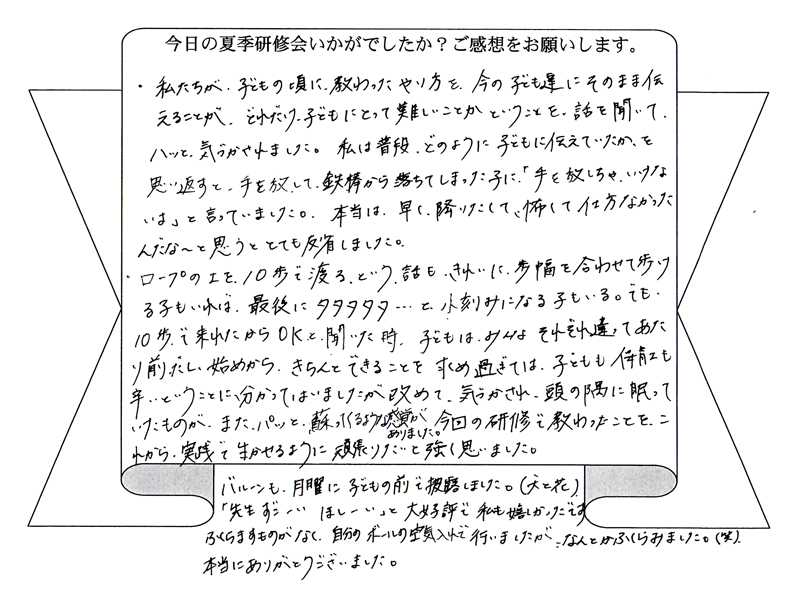 今日の夏季研修会いかがでしたか？ご感想をお願いします。
・私たちが、子どもの頃に、教わったやり方を、今の子ども達にそのまま伝
えることが、どれだけ、子どもにとって難しいことかということを、話を聞いて、
ハッと、気づかされました。私は普段、どのように子どもに伝えていたか、を
思い返すと、手を放して、鉄棒から落ちてしまった子に、「手を放しちゃ、いけな
いよ」と言っていました。本当は、早く、降りたくて、怖くて仕方なかった
んだな〜と思うととても反省しました。
・ロープの上を、10歩で渡る、という、話も、きれいに、歩幅を合わせて歩け
る子もいれば、最後にタタタタタ…と、小刻みになる子もいる。でも、
10歩、で来れたからOKと、聞いた時、子どもは、みんなそれぞれ違ってあた
り前だし、始めから、きちんとできることを求め過ぎては、子どもも保育士も
辛い、ということに、分かってはいましたが改めて、気づかされ、頭の隅に眠って
いたものが、また、パッと、蘇ってくるような感覚がありました。今回の研修で教わったことを、こ
れから、実践で生かせるように頑張りたいと強く思いました。
バルーンも、月曜に子どもの前で披露しました。（犬と花）
「先生すご…ほしーい」と大好評で私も嬉しかったです
ふくらますものがなく、自分のボールの空気入れで行いましたが、なんとかふくらみました。（笑）
本当にありがとうございました。